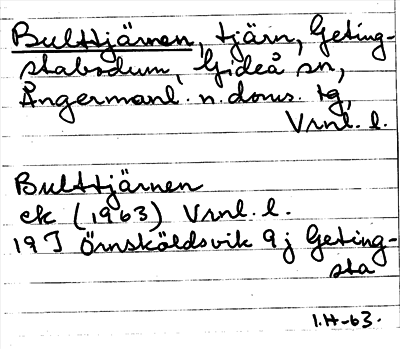 Bulttjärnen, tjärn, Geting-
stabodum, Gideå sn,
Ångermanl. n. doms. tg,
Vrnl. l.
Bulttjärnen
ek (1963) Vrnl. l.
19 J Örnsköldsvik 9 j Geting-
sta
I.H-63.